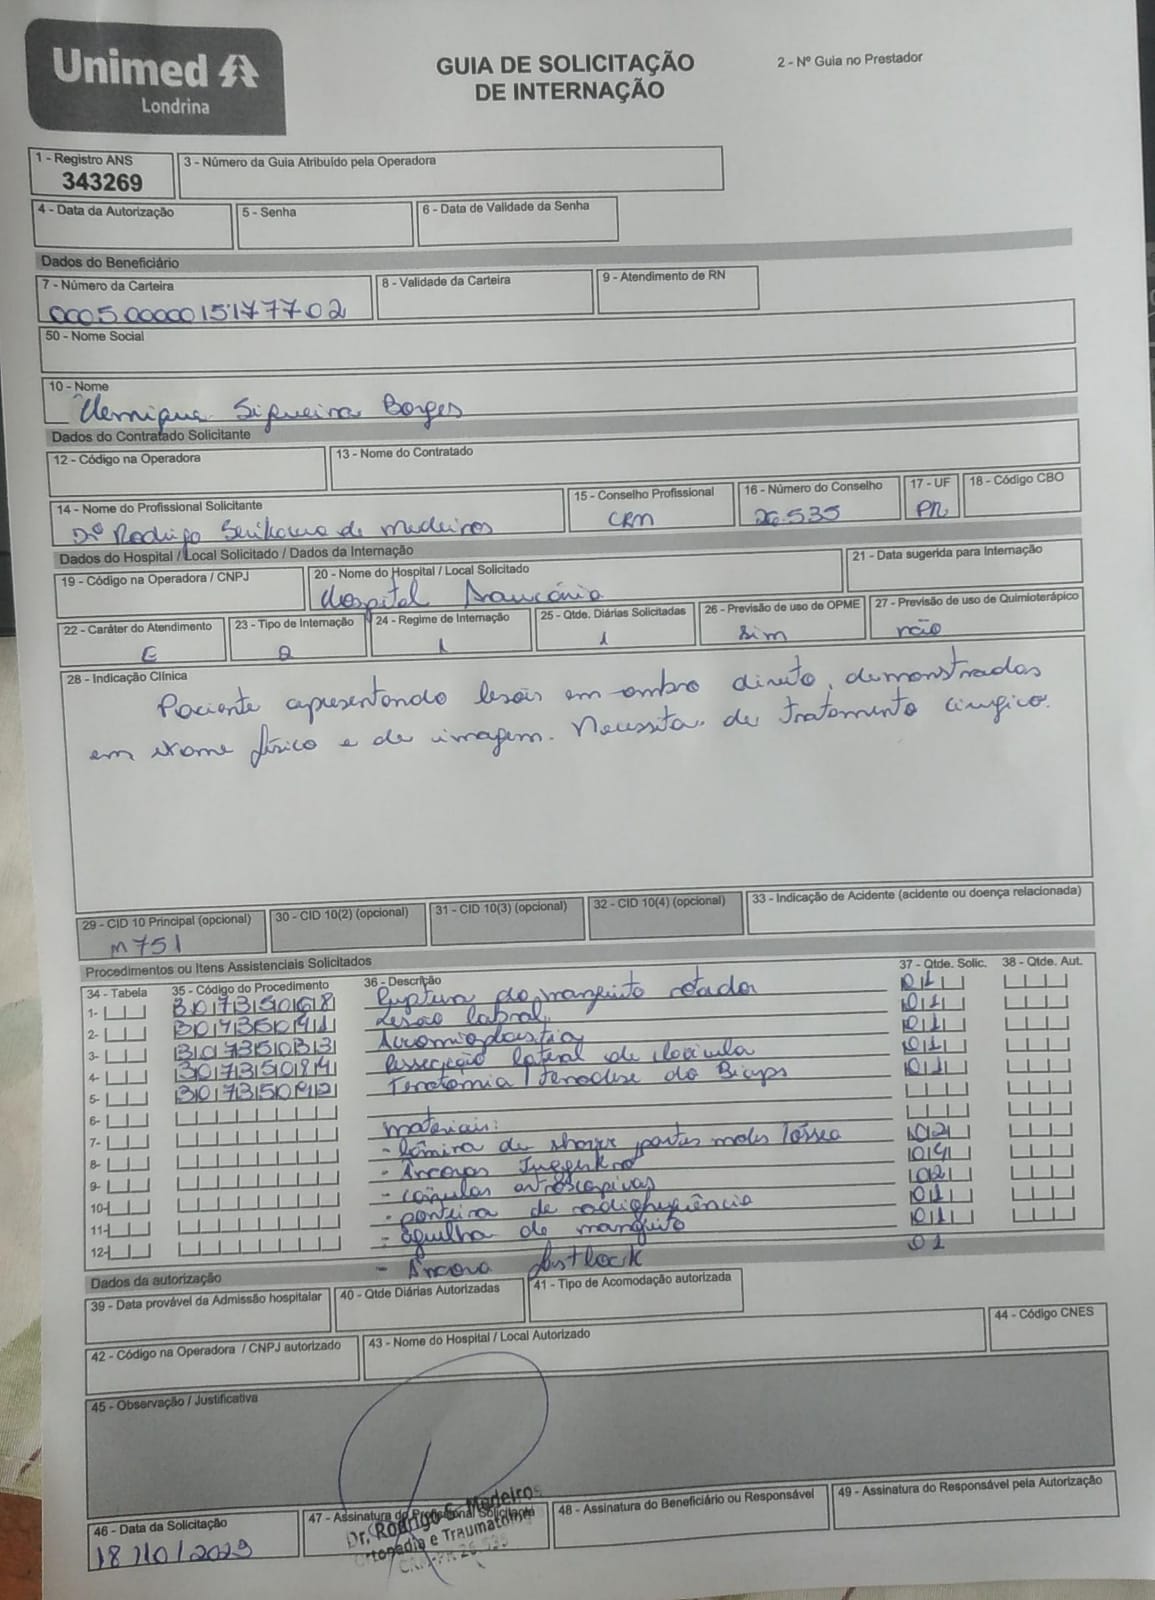 Unimed
Londrina
GUIA DE SOLICITAÇÃO
DE INTERNAÇÃO
2 - Nº Guia no Prestador
1 - Registro ANS
343269
3 - Número da Guia Atribuído pela Operadora
4 - Data da Autorização
5 - Senha
6 - Data de Validade da Senha
Dados do Beneficiário
7 - Número da Carteira
0005000001517 7702
8 - Validade da Carteira
9 - Atendimento de RN
50 - Nome Social
10 - Nome
Henrique Siqueira Borges
Dados do Contratado Solicitante
12 - Código na Operadora
13 - Nome do Contratado
14 - Nome do Profissional Solicitante
Drº Rodrigo de medeiros
15 - Conselho Profissional
CRM
16 - Número do Conselho
26.535
17 - UF
PR
18 - Código CBO
Dados do Hospital / Local Solicitado / Dados da Internação
19 - Código na Operadora / CNPJ
20 - Nome do Hospital / Local Solicitado
Hospital Araucária
21 - Data sugerida para Internação
22 - Caráter do Atendimento
E
23 - Tipo de Internação
2
24 - Regime de Internação
1
25 - Qtde. Diárias Solicitadas
1
26 - Previsão de uso de OPME
sim
27 - Previsão de uso de Quimioterápico
não
28 - Indicação Clínica
Paciente apresentando lesões em ombro direito, demonstradas
em exame físico e de imagem. Necessita de tratamento cirúgico.
29 - CID 10 Principal (opcional)
M751
30 - CID 10(2) (opcional)
31 - CID 10(3) (opcional)
32 - CID 10(4) (opcional)
33 - Indicação de Acidente (acidente ou doença relacionada)
Procedimentos ou Itens Assistenciais Solicitados
34 - Tabela
35 - Código do Procedimento
36 - Descrição
37 - Qtde. Solic.
38 - Qtde. Aut.
1- 30735068 Ruptura do manguito rotador 01
2- Lesão labral 01
3- 30735033 Acromioplastia 01
4- lateral de clavícula 01
5- Tenotomia / tenodese do Biceps 01
6-
7- materiais:
8- - lâmina de shaver partes moles / óssea 02
9- - Âncoras Juggerknot 04
10- - cânulas artroscopicas 02
11- - ponteira de radiofrequência 01
12- - agulha de manguito 01
- Âncora 01
Dados da autorização
39 - Data provável da Admissão hospitalar
40 - Qtde Diárias Autorizadas
41 - Tipo de Acomodação autorizada
42 - Código na Operadora / CNPJ autorizado
43 - Nome do Hospital / Local Autorizado
44 - Código CNES
45 - Observação / Justificativa
46 - Data da Solicitação
18/10/2023
47 - Assinatura do Profissional Solicitante
Dr. Rodrigo S. Medeiros
Ortopedia e Traumatologia
CRM-PR 26.535
48 - Assinatura do Beneficiário ou Responsável
49 - Assinatura do Responsável pela Autorização